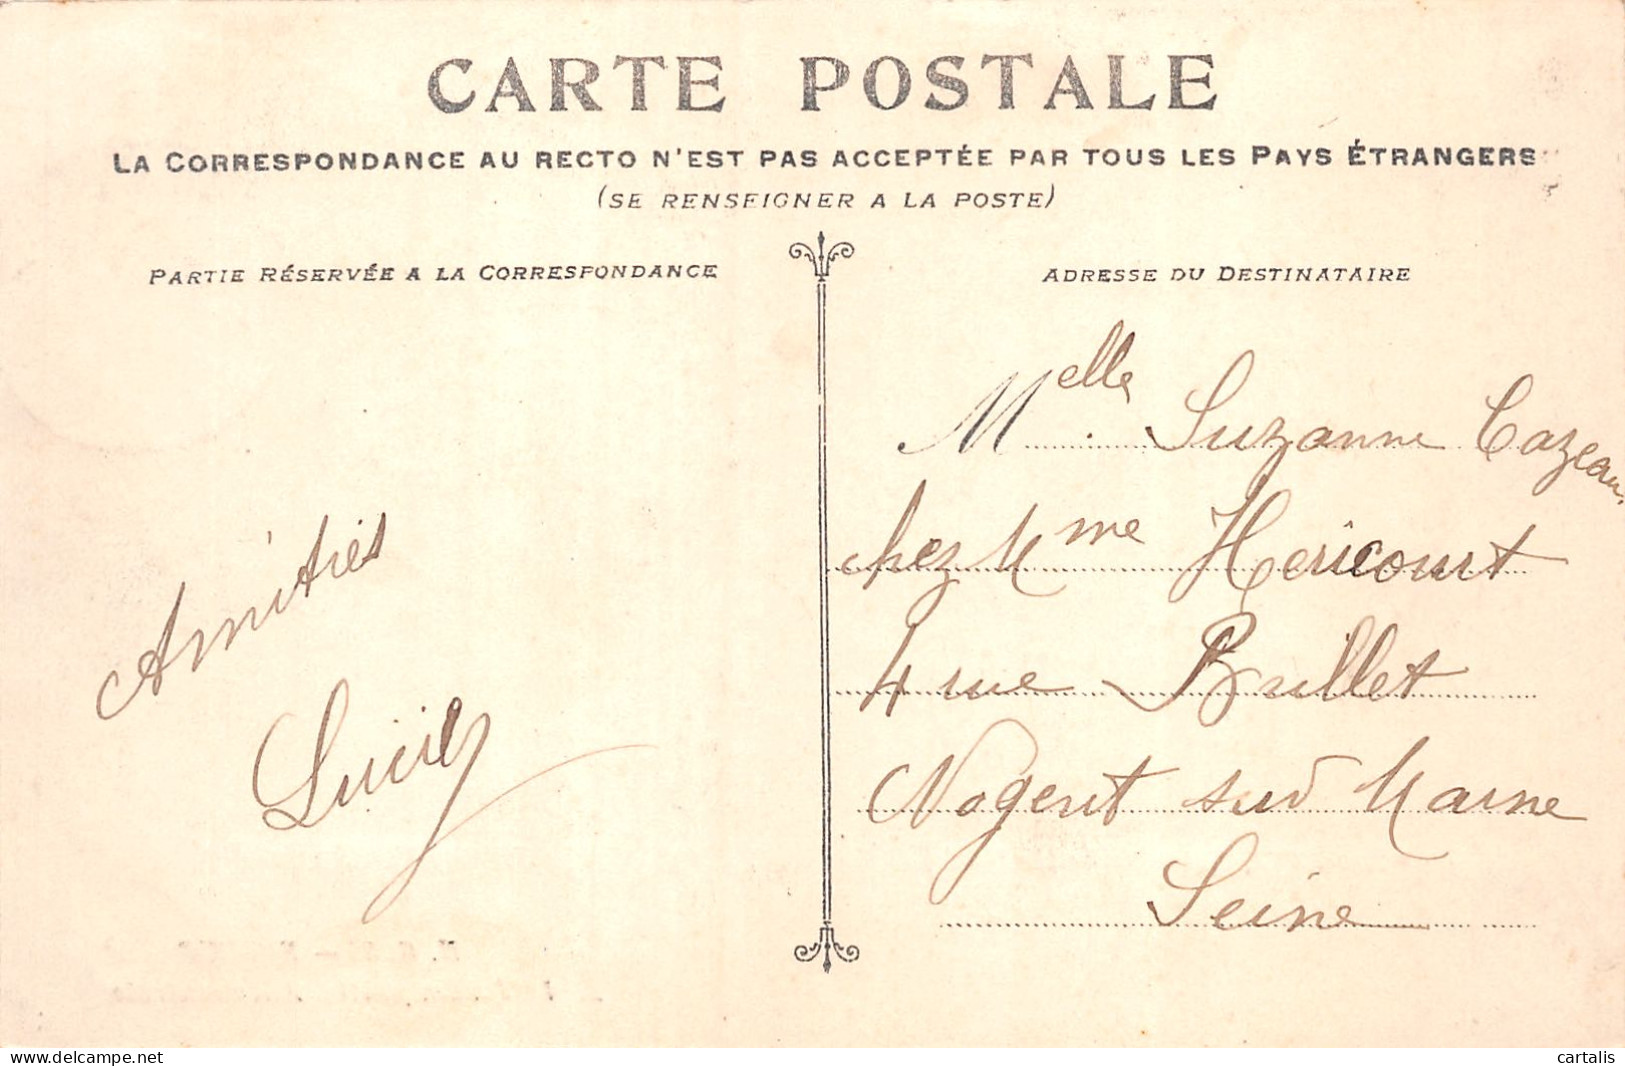 CARTE POSTALE
LA CORRESPONDANCE AU RECTO N'EST PAS ACCEPTÉE PAR TOUS LES PAYS ÉTRANGERS
(SE RENSEIGNER A LA POSTE)
PARTIE RÉSERVÉE A LA CORRESPONDANCE
Amitiés
Lucile
ADRESSE DU DESTINATAIRE
Melle Suzanne Cazeau
chez Mme Hericourt
4 rue Brillet
Nogent sur Marne
Seine
delcampe.net
cartalis